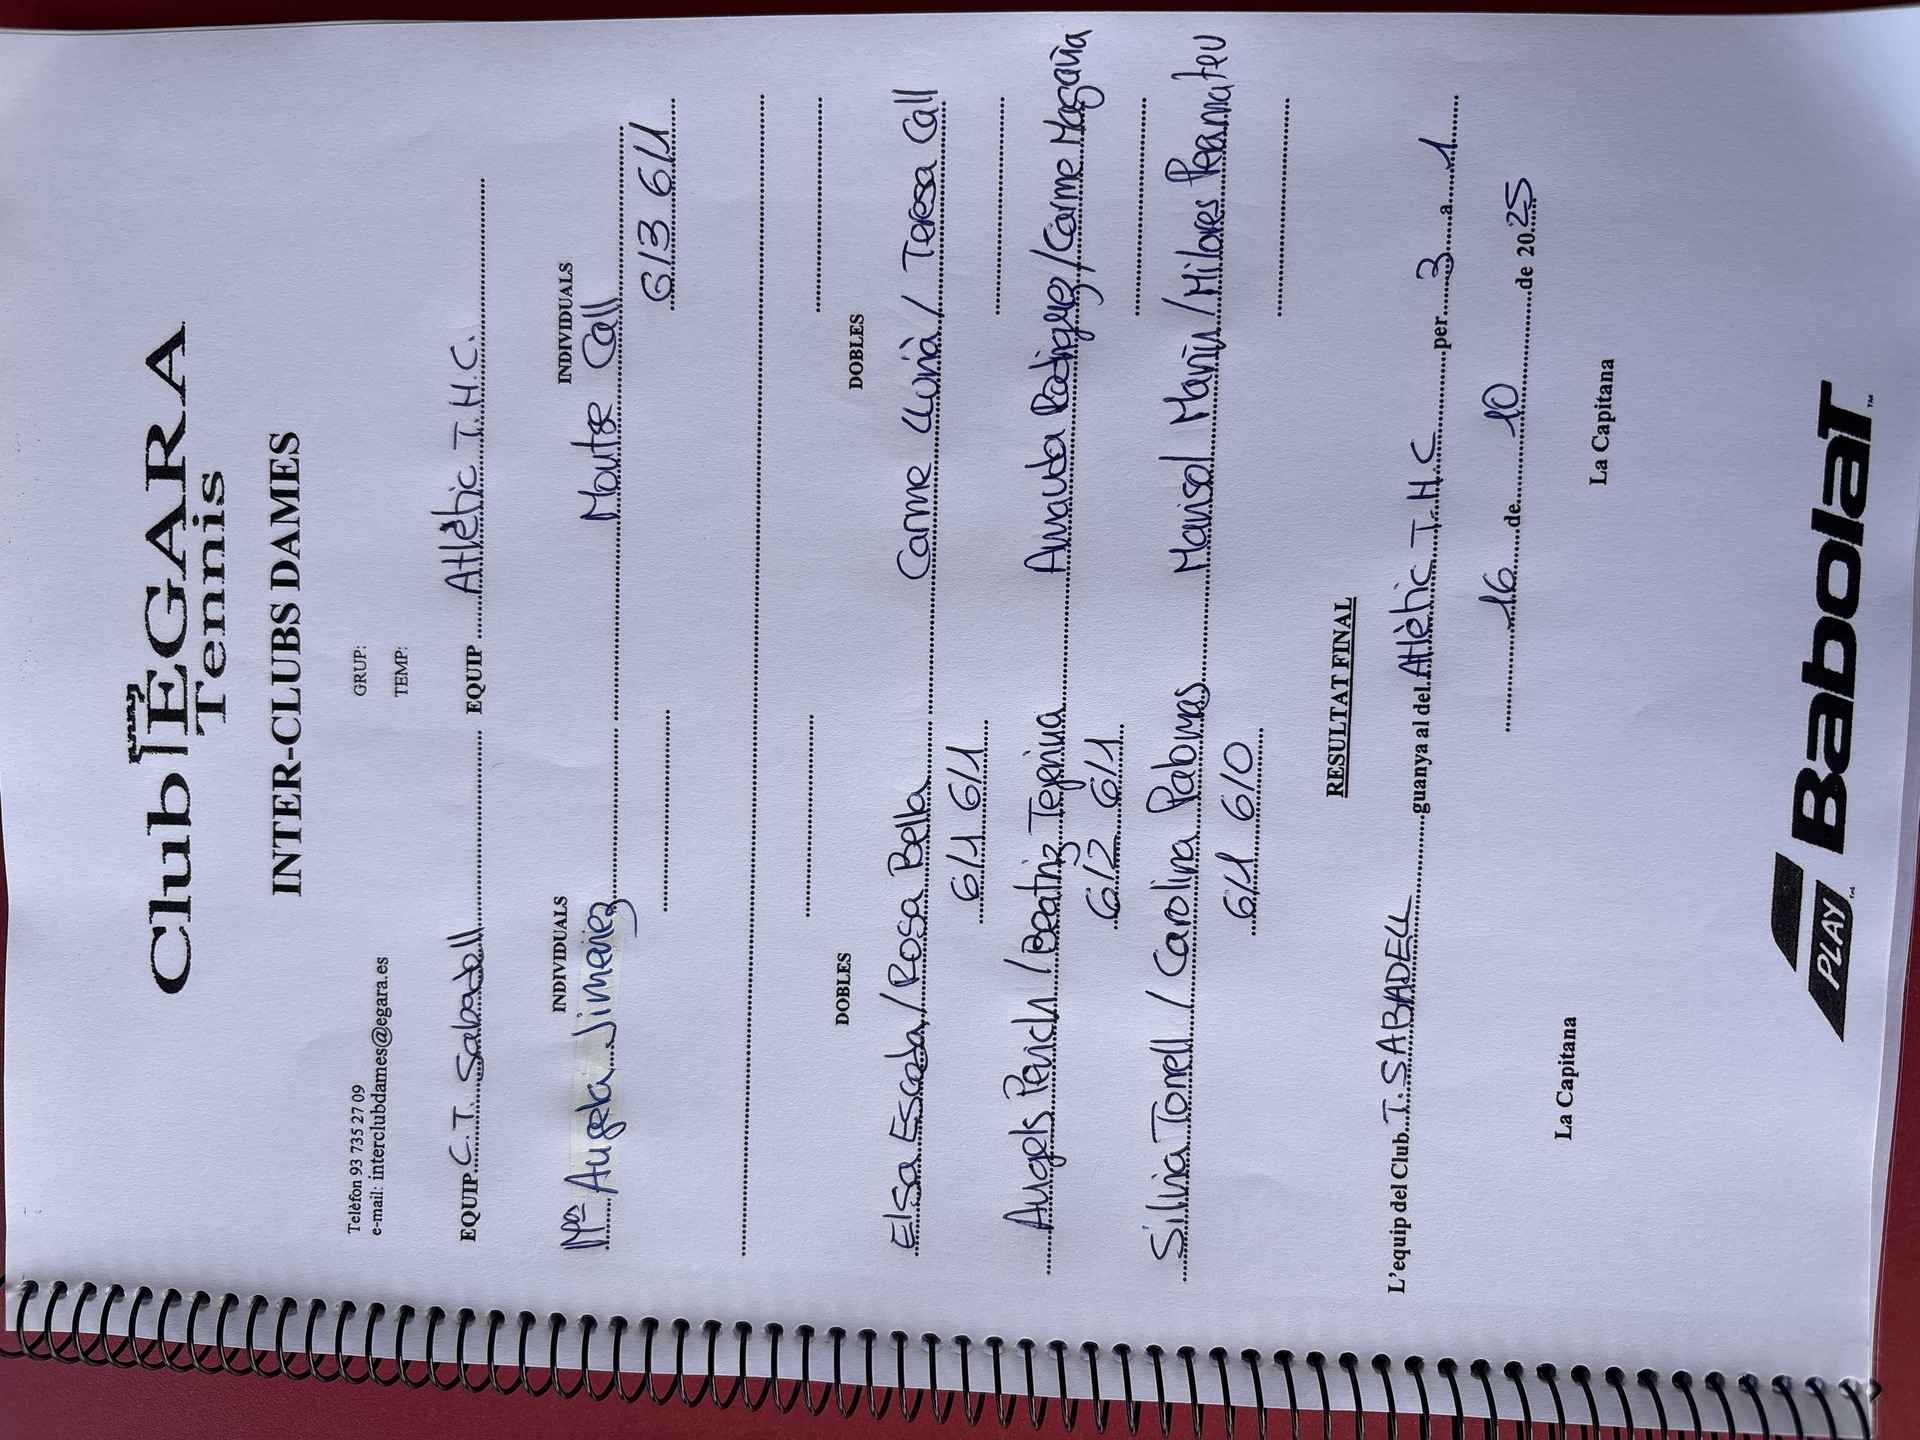 Club EGARA
Tennis
INTER-CLUBS DAMES
Telèfon 93 735 27 09
e-mail: interclubdames@egara.es
GRUP:
TEMP:
EQUIP C.T. Sabadell EQUIP Atlètic T.H.C.
INDIVIDUALS INDIVIDUALS
Mª Angela Jimenez Montse Call
6/3 6/1
DOBLES DOBLES
Elsa Escoda / Rosa Bella Carme Llurià / Teresa Call
6/1 6/1
Angels Perich / Beatriz Tejerina Amanda Rodriguez / Carme Magaña
6/2 6/1
Silvia Torrell / Carolina Pabmas Marisol Marín / Milores
6/1 6/0
RESULTAT FINAL
L'equip del Club T. SABADELL guanya al del Atlètic T.H.C per 3 a 1
16 de 10 de 2025
La Capitana La Capitana
PLAY Babolat